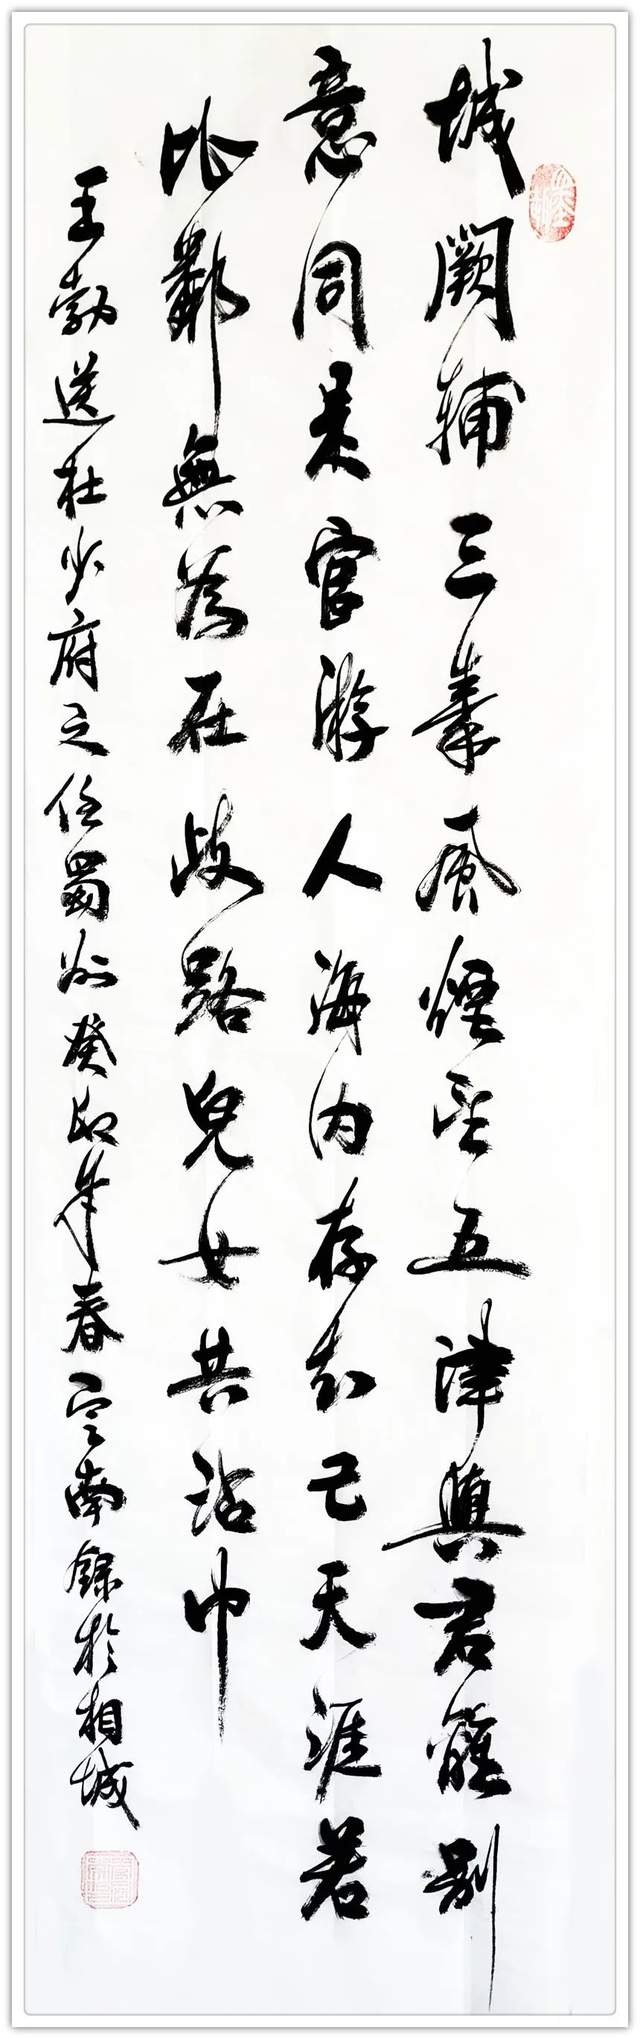 城闕輔三秦風煙望五津與君離別
意同是宦游人海內存知己天涯若
比鄰無為在歧路兒女共沾巾
王勃送杜少府之任蜀州癸卯年春定南錄於相城